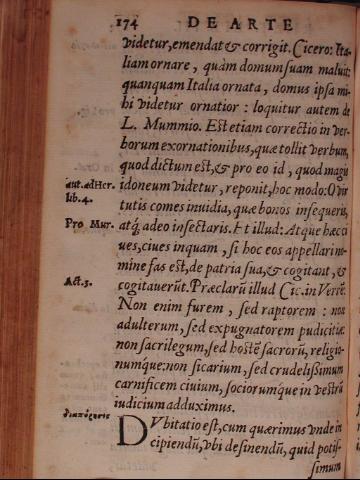 174 DE ARTE
videtur, emendat & corrigit. Cicero: Ita-
liam ornare, quàm domum suam maluit:
quanquam Italia ornata, domus ipsa mi-
hi videtur ornatior: loquitur autem de
L. Mummio. Est etiam correctio in ver-
borum exornationibus, quæ tollit verbum,
quod dictum est, & pro eo id, quod magis
aut. ad Her.
lib. 4.
idoneum videtur, reponit, hoc modo: O vir
tutis comes inuidia, quæ bonos insequeris,
Pro Mur.
atq́; adeo insectaris. Et illud: Atque hæc ci
ues, ciues inquam, si hoc eos appellari no-
mine fas est, de patria sua, & cogitant, &
Act. 3.
cogitauerũt. Præclarũ illud Cic. in Verrē.
Non enim furem, sed raptorem: non
adulterum, sed expugnatorem pudicitiæ:
non sacrilegum, sed hostē sacrorũ, religio-
numque: non sicarium, sed crudelissimum
carnificem ciuium, sociorumque in vestrũ
iudicium adduximus.
διαπόρησις
DVbitatio est, cum quærimus vnde in
cipiendũ, vbi desinendũ, quid potis-
simum